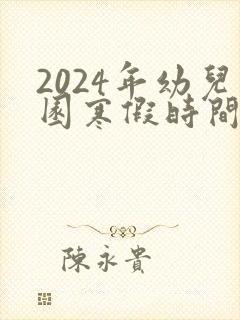 2024年幼兒
園寒假時間
陳永貴